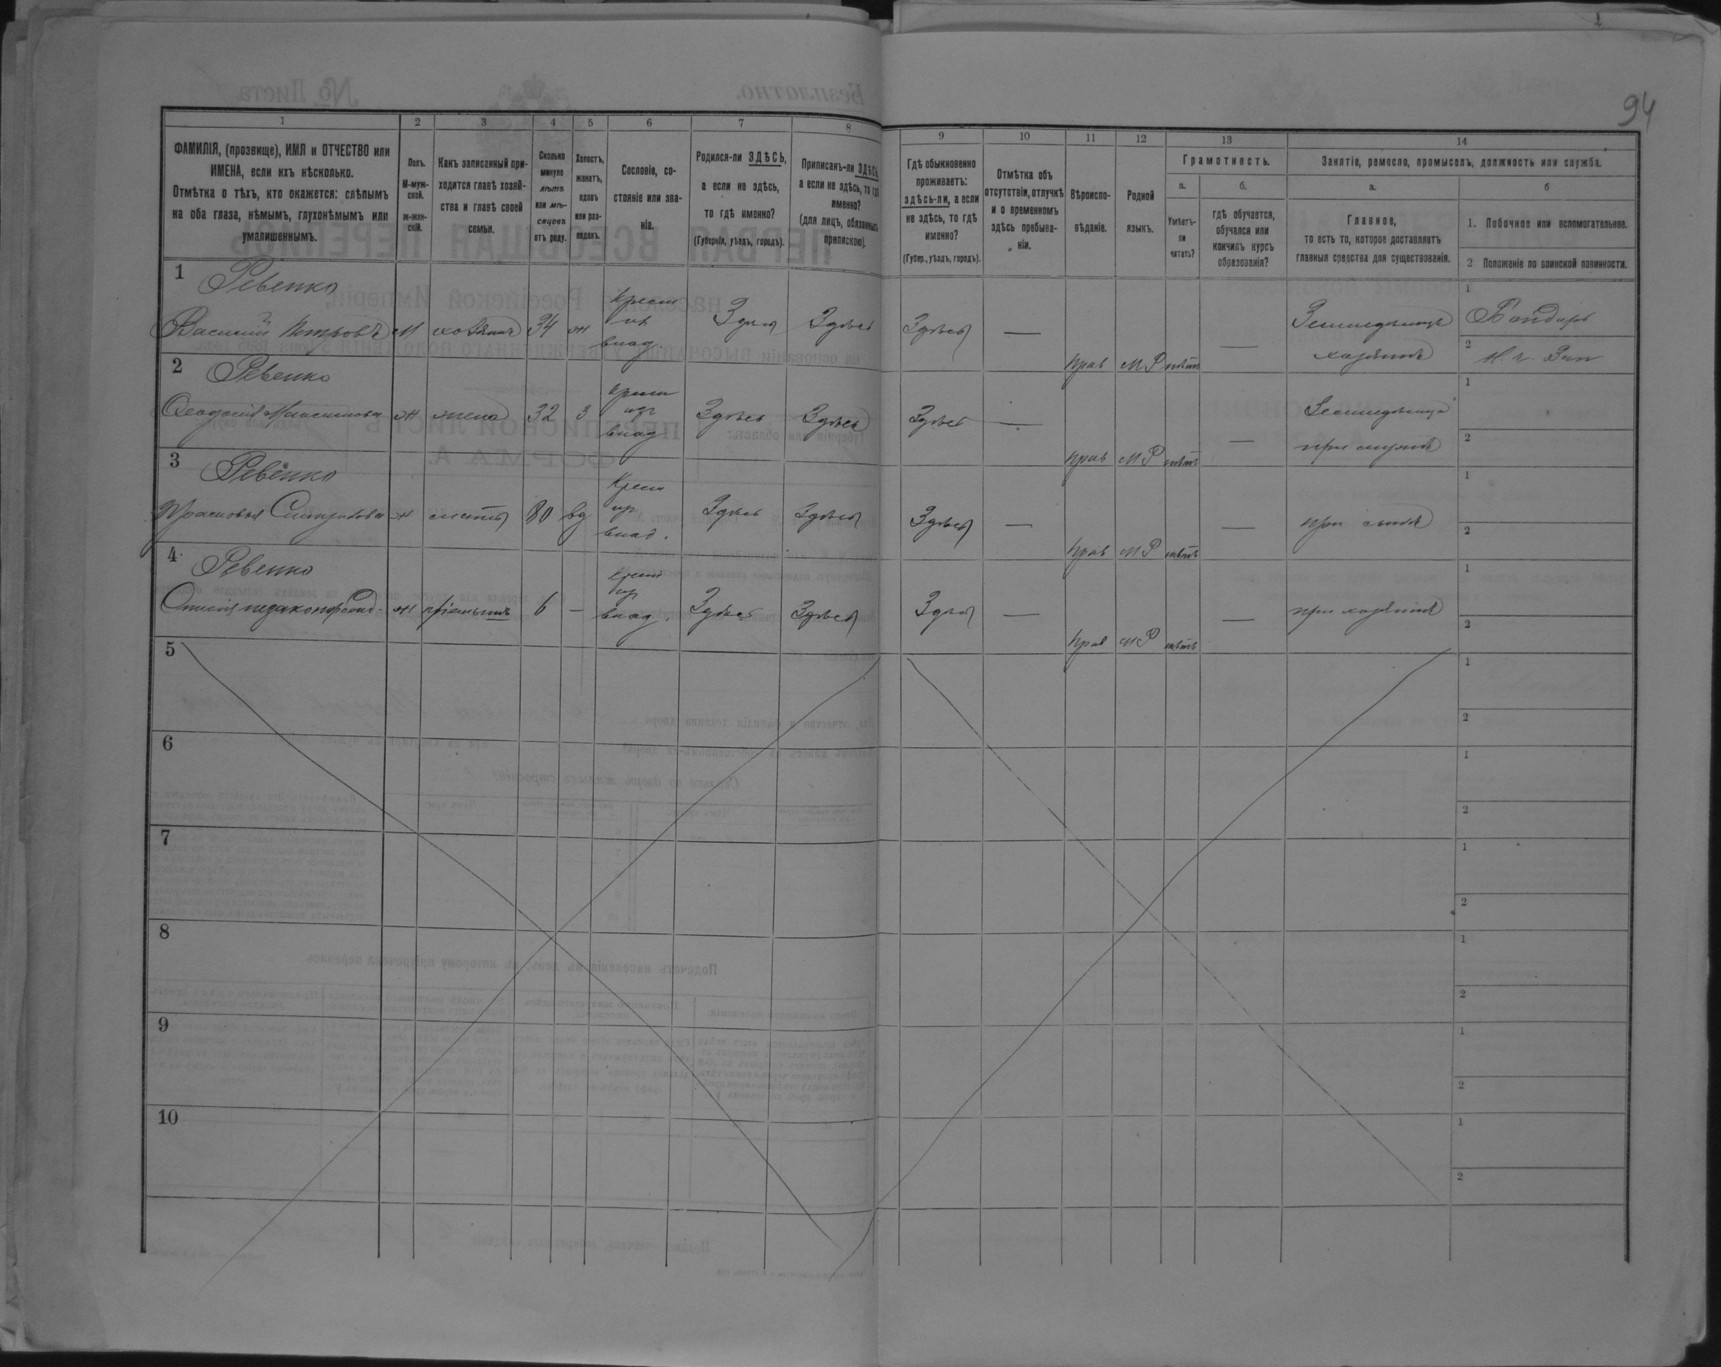 94
1 2 3 4 5 6 7 8 9 10 11 12 13 14
ФАМИЛІЯ, (прозвище), ИМЯ и ОТЧЕСТВО или
ИМЕНА, если ихъ нѣсколько.
Отмѣтка о тѣхъ, кто окажется: слѣпымъ
на оба глаза, нѣмымъ, глухонѣмымъ или
умалишеннымъ.
Полъ.
М-муж-
ской.
ж-жен-
скій.
Какъ записанный при-
ходится главѣ хозяй-
ства и главѣ своей
семьи.
Сколько
минуло
лѣтъ
или мѣ-
сяцевъ
отъ роду.
Холостъ,
женатъ,
вдовъ
или раз-
веденъ.
Сословіе, со-
стояніе или зва-
ніе.
Родился-ли ЗДѢСЬ,
а если не здѣсь,
то гдѣ именно?
(Губернія, уѣздъ, городъ).
Приписанъ-ли ЗДѢСЬ,
а если не здѣсь, то гдѣ
именно?
(для лицъ, обязанныхъ
припискою).
Гдѣ обыкновенно
проживаетъ:
здѣсь-ли, а если
не здѣсь, то гдѣ
именно?
(Губер., уѣздъ, городъ).
Отмѣтка объ
отсутствіи, отлучкѣ
и о временномъ
здѣсь пребыва-
ніи.
Вѣроиспо-
вѣданіе.
Родной
языкъ.
Грамотность.
а.
Умѣетъ-
ли
читать?
б.
гдѣ обучается,
обучался или
кончилъ курсъ
образованія?
Занятіе, ремесло, промыселъ, должность или служба.
а.
Главное,
то есть то, которое доставляетъ
главныя средства для существованія.
б
1. Побочное или вспомогательное.
2 Положеніе по воинской повинности.
1 Ревенко
Василій Петровъ м хозяинъ 34 ж Крест из влад. Здѣсь Здѣсь Здѣсь — Прав МР нѣтъ — Земледѣлецъ хозяинъ 1 Бондарь
2
2 Ревенко
Феодосія Максимова ж жена 32 з Крест из влад Здѣсь Здѣсь Здѣсь — Прав МР нѣтъ — при мужѣ 1
2
3 Ревенко
ж мать 80 вд Крест из влад. Здѣсь Здѣсь Здѣсь — Прав МР нѣтъ — при сынѣ 1
2
4 Ревенко
ж пріемышъ 6 — Крест из влад. Здѣсь Здѣсь Здѣсь — Прав МР нѣтъ — при хозяинѣ 1
2
5 1
2
6 1
2
7 1
2
8 1
2
9 1
2
10 1
2